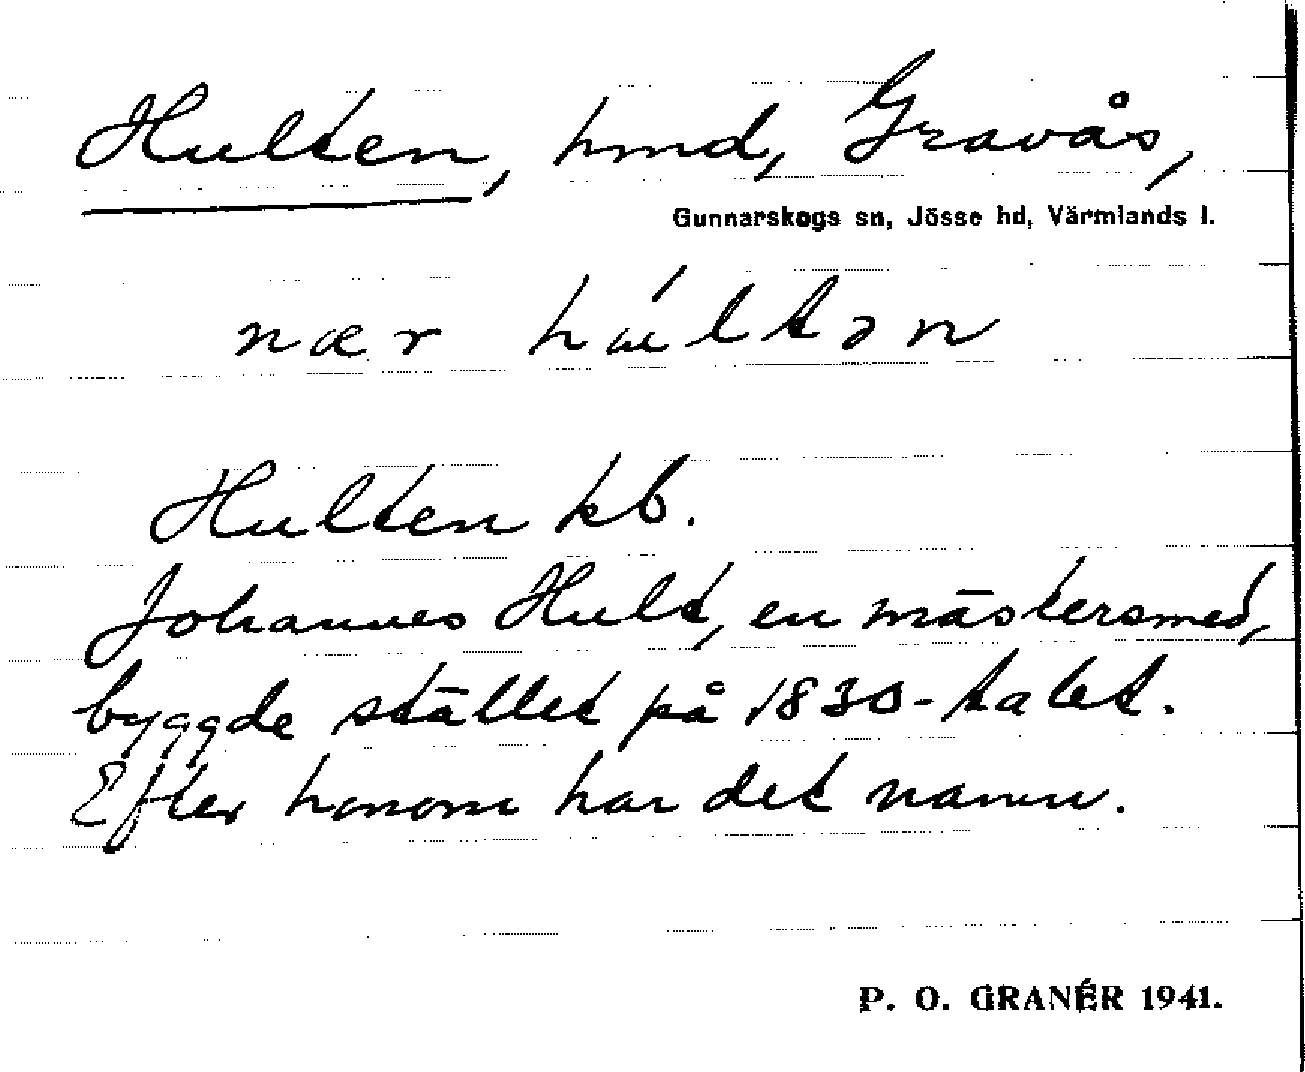 Hulten, hmd, Gravås,
Gunnarskogs sn, Jösse hd, Värmlands l.
nær
Hulten kb.
Johannes Hult, en mästersmed,
byggde stället på 1830-talet.
Efter honom har det namn.
P. O. GRANÉR 1941.